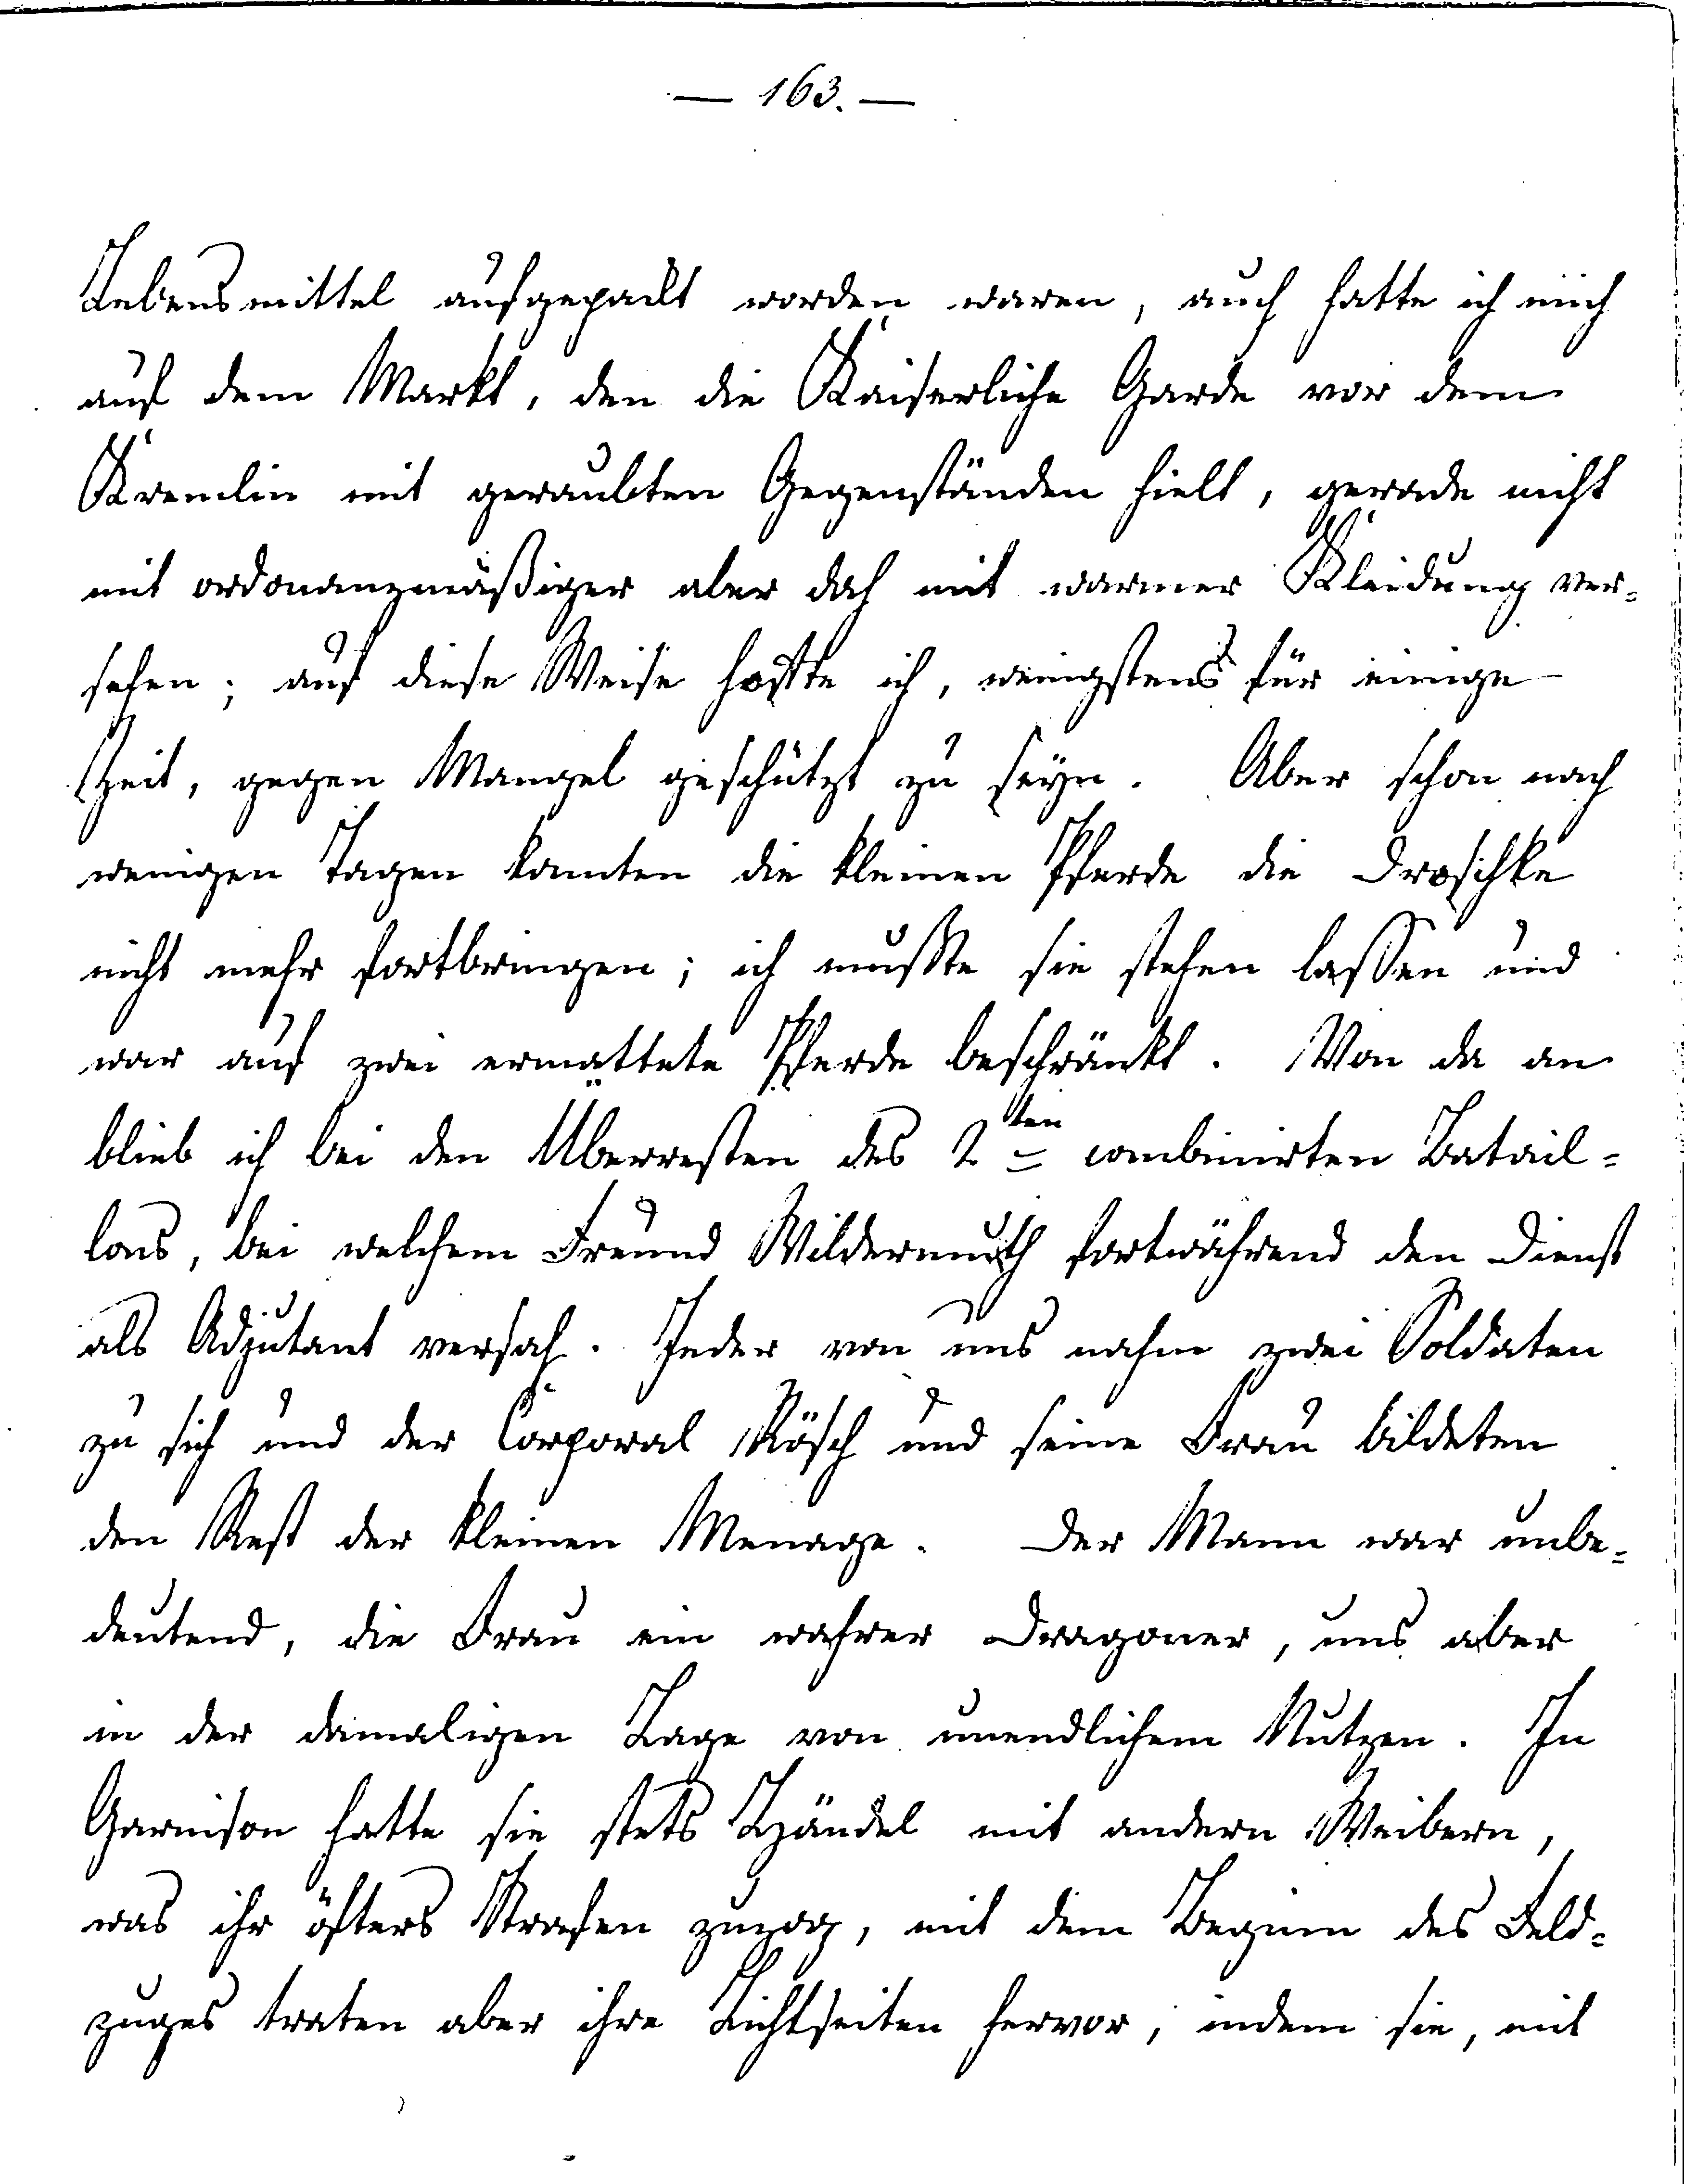 — 163. —
Lebensmittel aufgepackt worden waren, auch hatte ich mich
auf dem Markt, den die Kaiserliche Garde vor dem
Kremlin mit geraubten Gegenständen hielt, gerade nicht
mit ordonanzmäßiger aber doch mit warmer Kleidung ver=
sehen; auf diese Weise hoffte ich, wenigstens für einige
Zeit, gegen Mangel geschützt zu seyn. Aber schon nach
wenigen Tagen konnten die kleinen Pferde die Droschke
nicht mehr fortbringen; ich mußte sie stehen lassen und
war auf zwei ermattete Pferde beschränkt. Von da an
blieb ich bei den Überresten des 2ten combinirten Batail=
lons, bei welchem Freund Wildermuth fortwährend den Dienst
als Adjutant versah. Jeder von uns nahm zwei Soldaten
zu sich und der Corporal Rösch und seine Frau bildeten
den Rest der kleinen Menage. Der Mann war unbe=
deutend, die Frau ein wahrer Dragoner, uns aber
in der damaligen Lage von unendlichem Nutzen. In
Garnison hatte sie stets Händel mit andern Weibern,
was ihr öfters Strafen zuzog, mit dem Beginn des Feld=
zuges traten aber ihre Lichtseiten hervor, indem sie, mit